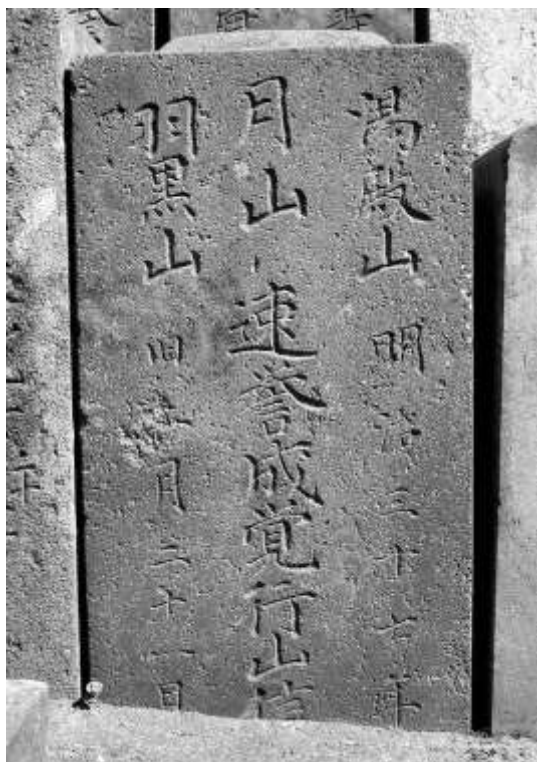 湯殿山 明治三十七年
月山 速誉成覚行山
羽黒山 旧五月二十一日